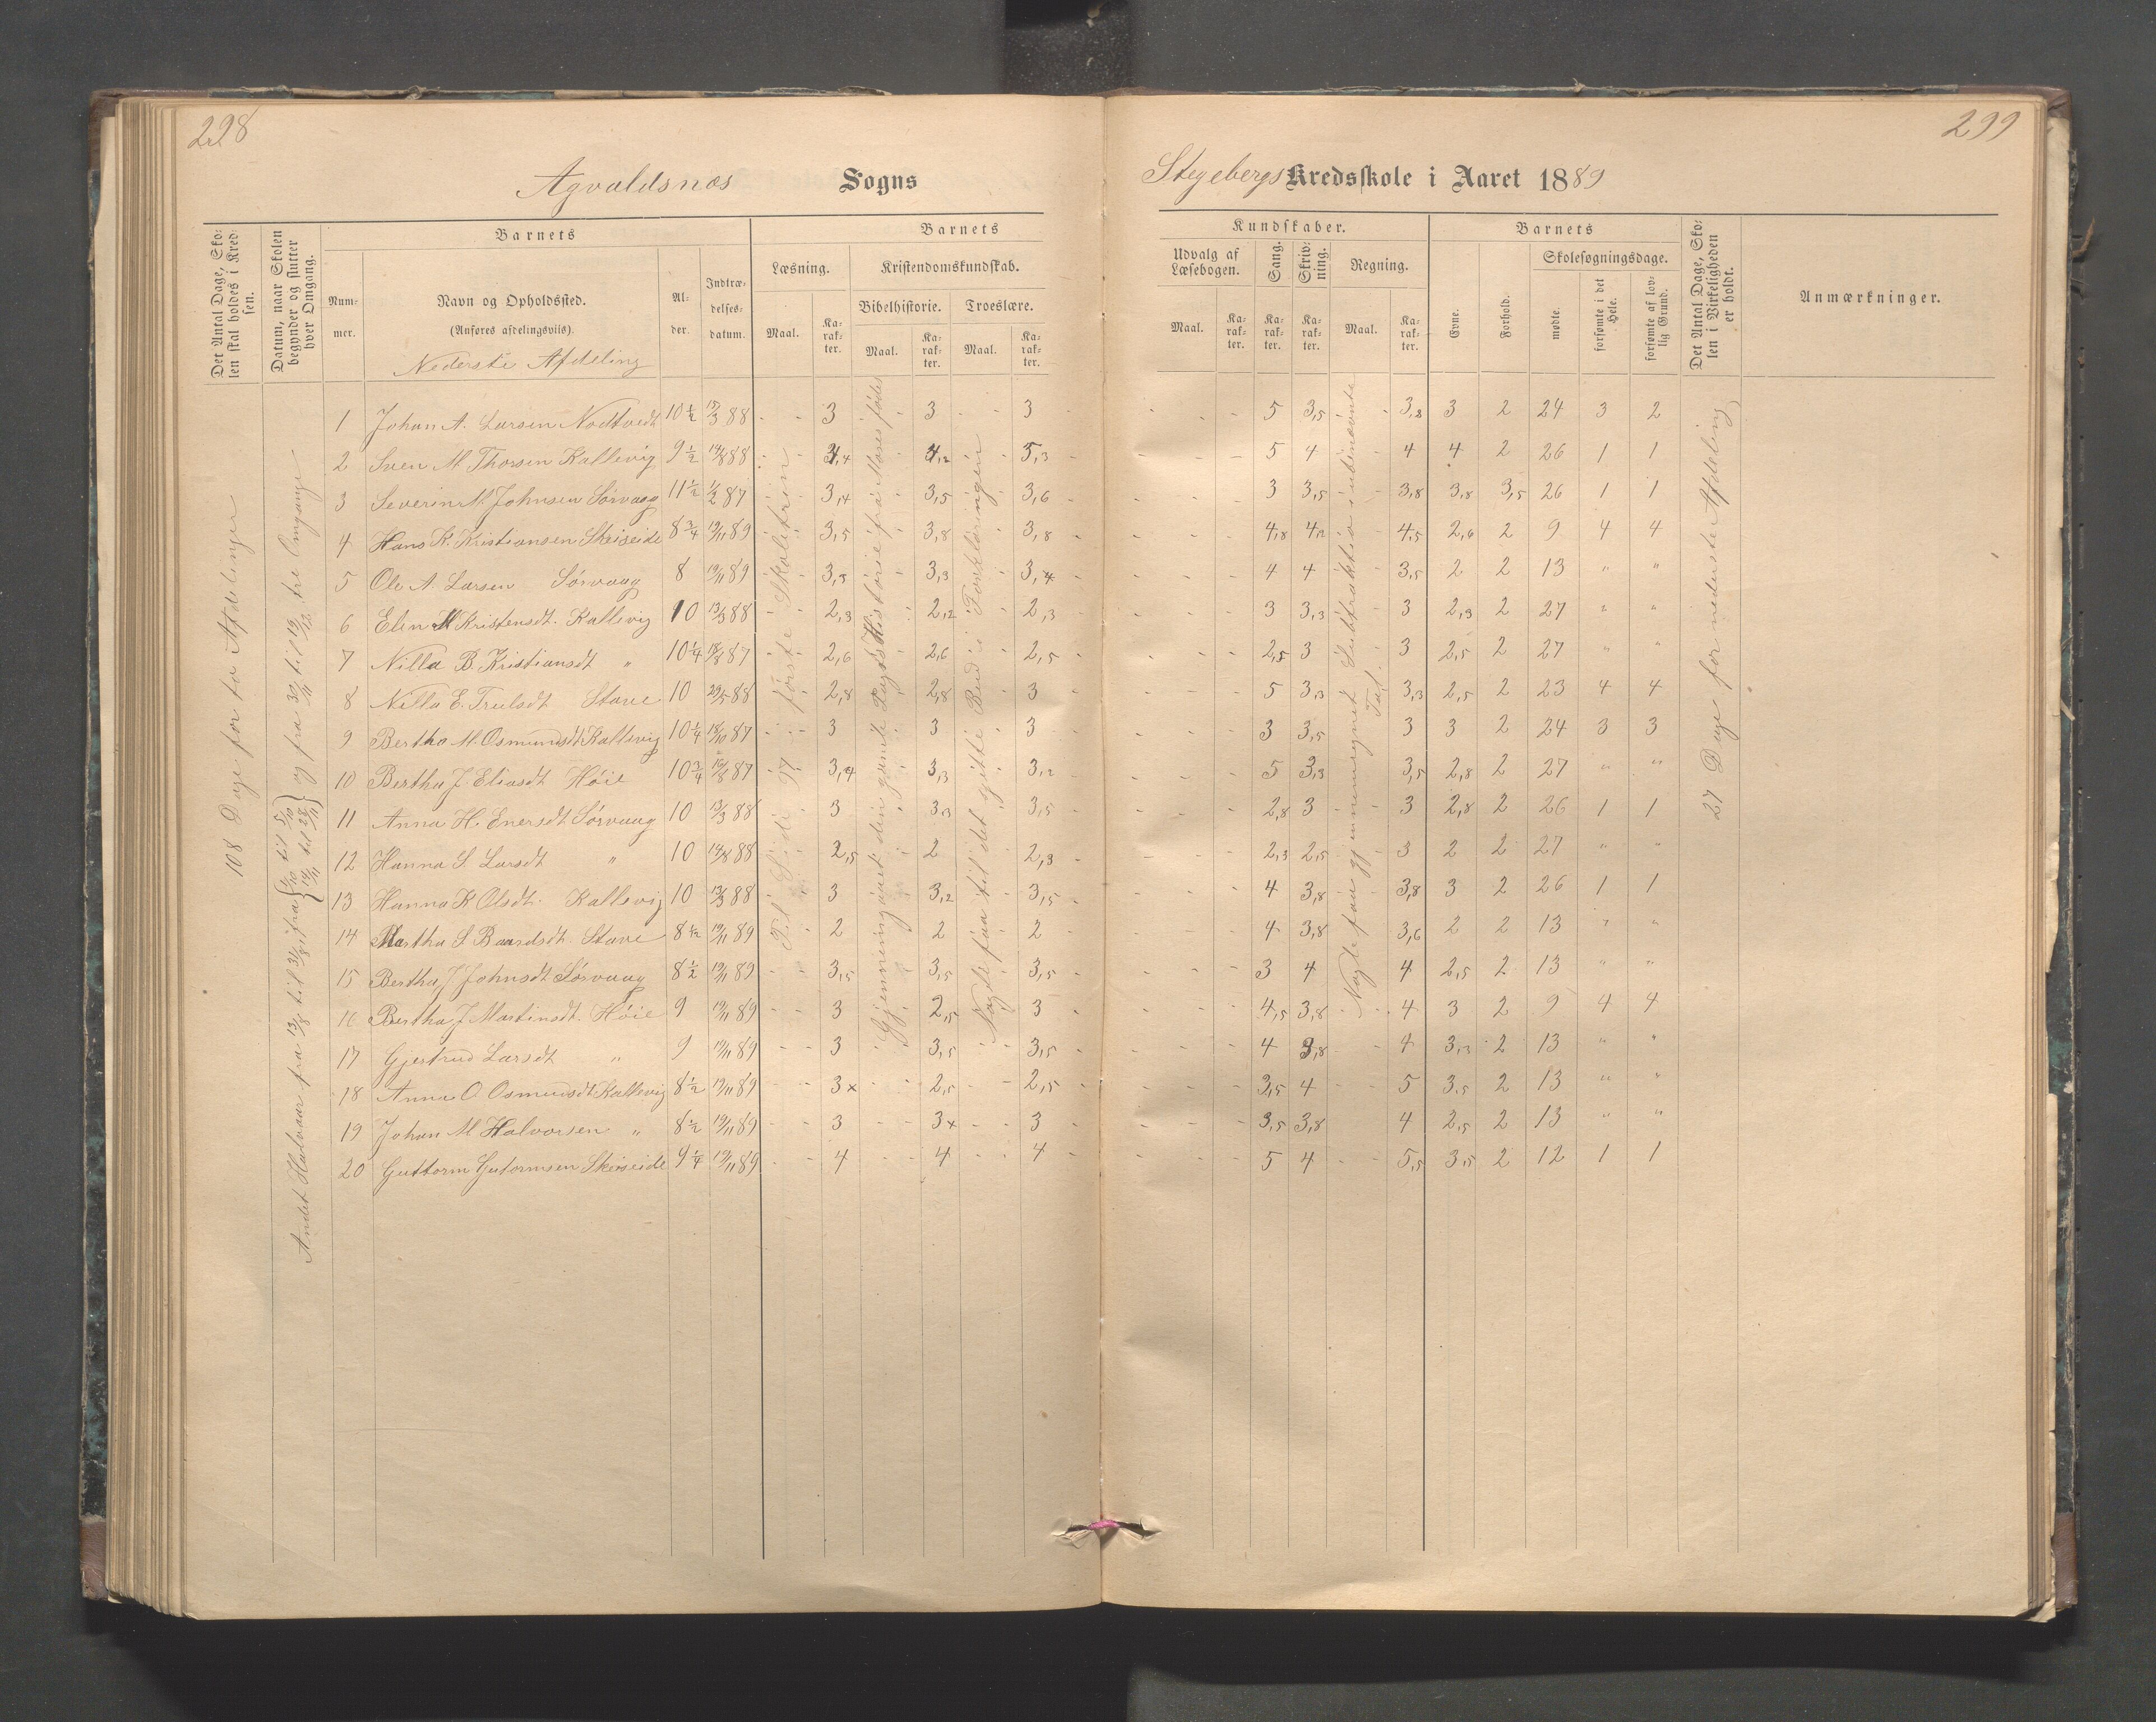 298
299
Agvaldsnæs Sogns
Stegebergs Kredsskole i Aaret 1889
Det Antal Dage, Skolen skal holdes i Kredsen.
Datum, naar Skolen begynder og slutter hver Omgang.
Barnets
Nummer.
Navn og Opholdssted.
(Anføres afdelingsviis).
Nederste Afdeling
Alder.
Indtrædelsesdatum.
Barnets
Læsning.
Maal.
Karakter.
Kristendomskundskab.
Bibelhistorie.
Maal.
Karakter.
Troeslære.
Maal.
Karakter.
Kundskaber.
Udvalg af Læsebogen.
Maal.
Karakter.
Sang.
Karakter.
Skrivning.
Karakter.
Regning.
Maal.
Karakter.
Barnets
Evne.
Forhold.
Skolesøgningsdage.
mødte.
forsømte i det Hele.
forsømte af lovlig Grund.
Det Antal Dage, Skolen i Virkeligheden er holdt.
Anmærkninger.
108 Dage for to Afdelinger
Andet Halvaar fra 13/8 til 31/8, fra {1/10 til 5/10 14/11 til 23/11} og fra 30/11 til 19/12 tre Omgange
Til Side 97 i første Skoletrin
Gjennemgaaet den gamle Pagts Historie fra Moses fødes
Nogle faa til det sjette Bud i Forklaringen
Nogle faa gjennemregnet Subtraktion i ubenævnte Tal.
27 Dage for nederste Afdeling
1 Johan A. Larsen Nodtvedt 10 1/2 15/3 88 3 3 3 5 3,5 3,2 3 2 24 3 2
2 Sven M. Thorsen Kallevig 9 1/2 14/8 88 4,4 4,2 5,3 5 4 4 4 2 26 1 1
3 Severin M Johnsen Sørvaag 11 1/2 1/2 87 3,4 3,5 3,6 3 3,5 3,8 3,8 3,5 26 1 1
4 Hans K. Kristiansen Skeiseide 8 3/4 19/11 89 3,5 3,8 3,8 4,8 4,2 4,5 2,6 2 9 4 4
5 Ole A. Larsen Sørvaag 8 19/11 89 3,3 3,3 3,4 4 4 3,5 2 2 13 " "
6 Elen M Kristensdt. Kallevig 10 13/3 88 2,3 2,2 2,3 3 3,3 3 2,3 2 27 " "
7 Nilla B. Kristiansdt " 10 1/4 18/8 87 2,6 2,6 2,5 2,5 3 3 2,5 2 27 " "
8 Nilla E. Trulsdt Stave 10 29/5 88 2,8 2,8 3 5 3,3 3,3 2,5 2 23 4 4
9 Bertha M. Osmundsdt Kallevig 10 1/4 18/10 87 3 3 3 3 3,5 3 3 2 24 3 3
10 Bertha J Eliasdt Høie 10 3/4 16/8 87 3,4 3,3 3,2 5 3,3 3,5 2,8 2 27 " "
11 Anna H. Enersdt Sørvaag 10 13/3 88 3 3,3 3,5 2,8 3 3 2,8 2 26 1 1
12 Hanna S. Larsdt " 10 14/8 88 2,5 2 2,3 2,3 2,5 3 2 2 27 " "
13 Hanna K Olsdt. Kallevig 10 13/3 88 3 3,2 3,5 4 3,8 3,8 3 2 26 1 1
14 Martha S Baardsdt. Stave 8 1/2 19/11 89 2 2 2 4 3,8 3,6 2 2 13 " "
15 Bertha J Johnsdt Sørvaag 8 1/2 19/11 89 3,5 3,5 3,5 3 4 4 2,5 2 13 " "
16 Bertha J Martinsdt. Høie 9 19/11 89 3 2,5 3 4,5 3,8 4 3 2 9 4 4
17 Gjertrud Larsdt " 9 19/11 89 3 3,5 3,5 4 3,8 4 3,3 2 13 " "
18 Anna O. Osmundsdt Kallevig 8 1/2 19/11 89 3 x 2,5 2,5 3,5 4 5 3,5 2 13 " "
19 Johan M Halvorsen " 8 1/2 19/11 89 3 3 x 3 3,5 3,8 4 2,5 2 13 " "
20 Guttorm Gutormsen Skeiseide 9 1/4 19/11 89 4 4 4 5 4 5,5 3,5 2 12 1 1